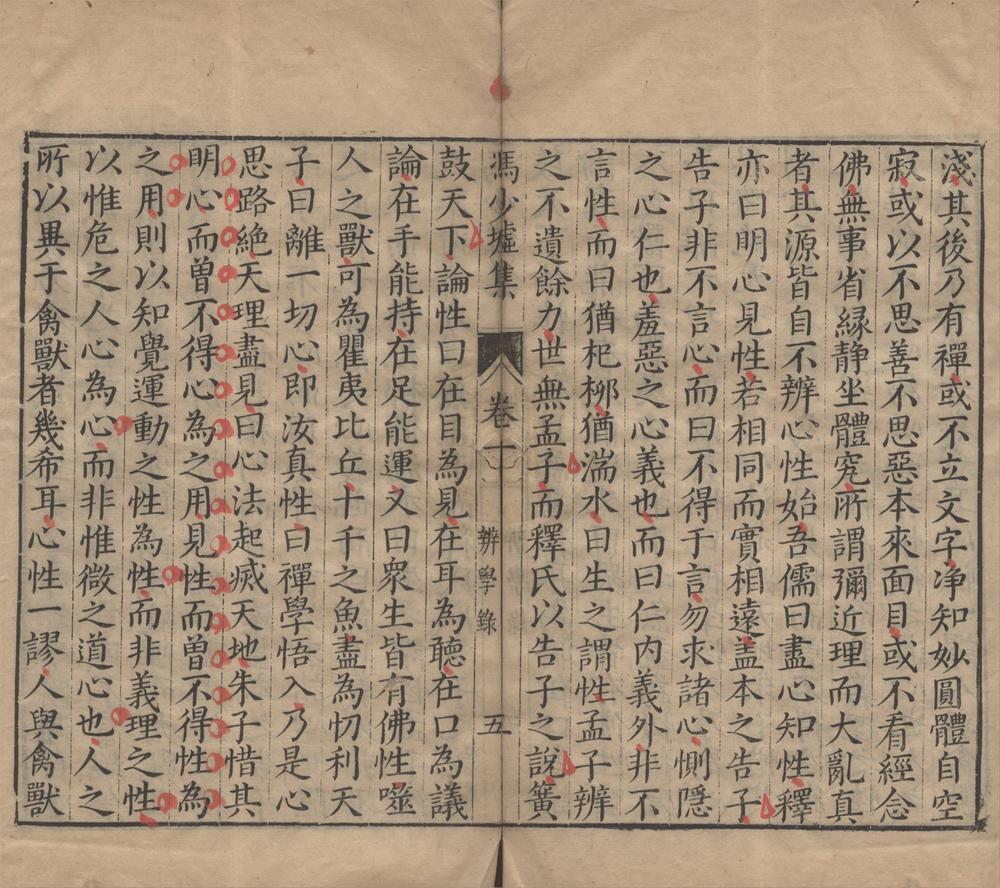 淺其後乃有禪或不立文字净知妙圓體自空
寂或以不思善不思惡本來面目或不看經念
佛無事省緣静坐體究所謂彌近理而大亂真
者其源皆自不辨心性始吾儒曰盡心知性釋
亦曰明心見性若相同而實相遠盖本之告子
告子非不言心而曰不得于言勿求諸心惻隱
之心仁也羞惡之心義也而曰仁内義外非不
言性而曰猶杞柳猶湍水曰生之謂性孟子辨
之不遺餘力世無孟子而釋氏以告子之說簧
馮少墟集
卷一
辨學錄
五
鼓天下論性曰在目為見在耳為聽在口為議
論在手能持在足能運又曰眾生皆有佛性噬
人之獸可為瞿夷比丘十千之魚盡為忉利天
子曰離一切心即汝真性曰禪學悟入乃是心
思路絶天理盡見曰心法起滅天地朱子惜其
明心而曾不得心為之用見性而曾不得性為
之用則以知覺運動之性為性而非義理之性
以惟危之人心為心而非惟微之道心也人之
所以異于禽獸者幾希耳心性一謬人與禽獸